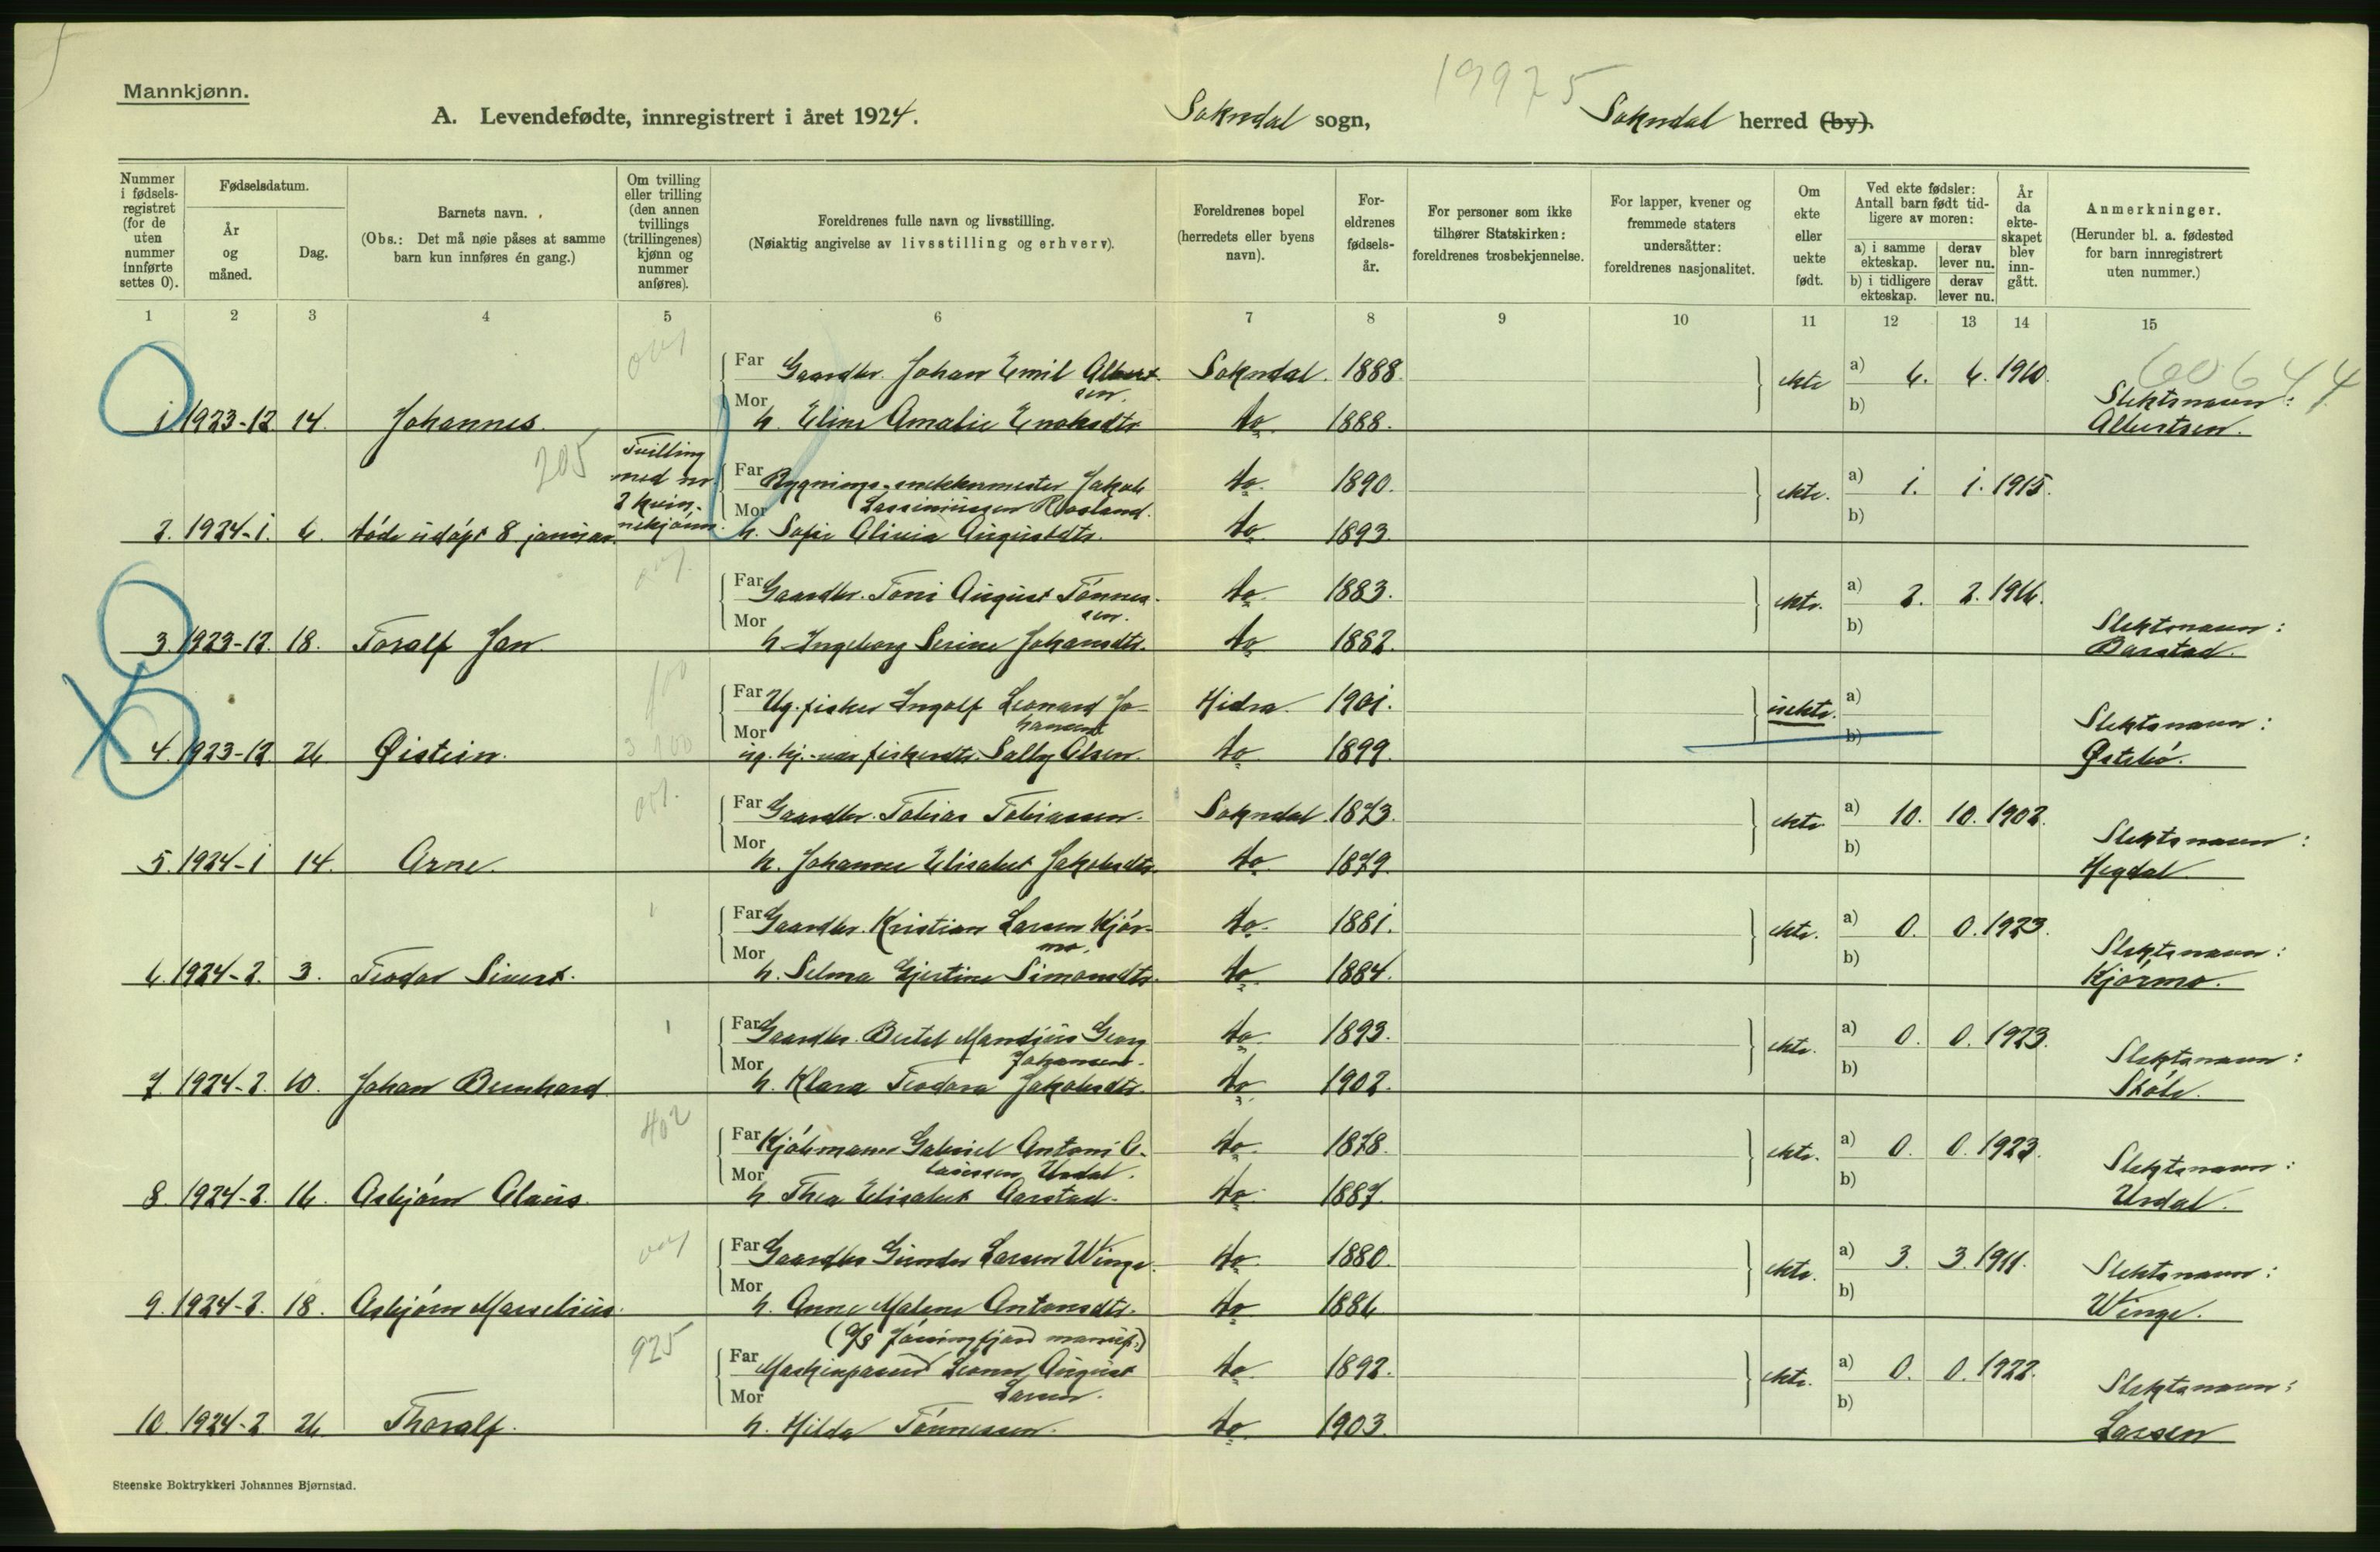 19975
Mannkjønn.
A. Levendefødte, innregistrert i året 1924. Sokndal sogn, Sokndal herred (by).
Nummer i fødsels-registret (for de uten nummer innførte settes 0).
Fødselsdatum.
År og måned.
Dag.
Barnets navn.
(Obs.: Det må nøie påses at samme barn kun innføres én gang.)
Om tvilling eller trilling (den annen tvillings (trillingenes) kjønn og nummer anføres).
Foreldrenes fulle navn og livsstilling.
(Nøiaktig angivelse av livsstilling og erhverv).
Foreldrenes bopel (herredets eller byens navn).
For-eldrenes fødsels-år.
For personer som ikke tilhører Statskirken: foreldrenes trosbekjennelse.
For lapper, kvener og fremmede staters undersåtter: foreldrenes nasjonalitet.
Om ekte eller uekte født.
Ved ekte fødsler: Antall barn født tid-ligere av moren:
a) i samme ekteskap. derav lever nu.
b) i tidligere ekteskap. derav lever nu.
År da ekte-skapet blev inn-gått.
Anmerkninger.
(Herunder bl. a. fødested for barn innregistrert uten nummer.)
1 2 3 4 5 6 7 8 9 10 11 12 13 14 15
60644
Far Gaardbr. Johan Emil Albert- Sokndal. 1888. ekte a) 6. 6. 1910. Slektsnavn:
sen.
1 1923-12 14. Johannes. Mor h. Eline Amalie Enoksdtr do 1888. b) Albertsen.
205
Tvilling med nr. 2 kvin-nekjønn.
Far Bygnings-snekkermester Jakob do. 1890. ekte. a) 1. 1. 1915.
Rosland.
2. 1924-1. 6. døde udøpt 8 januar. Mor h. Sofie Olivia Augustdtr. do 1893. b)
Far Gaardbr. Toni August Tønnes- do. 1883. ekte. a) 2. 2. 1916. Slektsnavn:
sen.
3. 1923-12. 18. Toralf Jan. Mor h. Ingeborg Serine Johansdtr. do 1882. b) Barstad.
Far Ug. fisker Ingolf Leonard Jo- Hidra. 1901. uekte. a) Slektsnavn:
hansen
4. 1923-12 26 Øistein. Mor ug. fiskerdtr. Sally Olsen. do 1899. b) Østebø.
Far Gaardbr. Tobias Tobiassen. Sokndal. 1873. ekte a) 10. 10. 1902. Slektsnavn:
5. 1924-1 14. Arne. Mor h. Johanne Elisabet Jakobsdtr. do 1879. b) Hegdal.
Far Gaardbr. Kristian Larsen Kjør- do. 1881. ekte. a) 0. 0. 1923. Slektsnavn:
mo.
6. 1924-2. 3. Teodor Sivert. Mor h. Selma Gjertine Simonsdtr. do 1884. b) Kjørmo.
Far Gaardbr. Bertel Mandius Georg do. 1893. ekte. a) 0. 0. 1923. Slektsnavn:
Johansen.
7. 1924-2. 10. Johan Bernhard Mor h. Klara Teodora Jakobsdtr. do 1902. b)
402
Far Kjøbmann Gabriel Antoni C- do. 1878. ekte. a) 0. 0. 1923. Slektsnavn:
lausen Urdal.
8. 1924-2. 16. Asbjørn Claus. Mor h. Thea Elisabet Aarstad. do. 1887. b) Urdal.
Far Gaardbr Gunder Larsen Winge. do. 1880. ekte. a) 3. 3. 1911. Slektsnavn:
9. 1924-2. 18. Asbjørn Marselius. Mor h. Anne Malene Antonsdtr. do 1886 b) Winge.
925
(A/S Jøssingfjord manuf.)
Far Maskinpasser Leonor August do. 1892. ekte. a) 0. 0. 1922. Slektsnavn:
Larsen.
10. 1924-2 26 Thoralf. Mor h. Hilda Tønnessen. do 1903. b) Larsen
Steenske Boktrykkeri Johannes Bjørnstad.